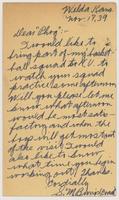 Welda, Kans.
Nov. 17, 39
Dear "Phog":-
I would like to
bring part of my basket-
ball squad to K.U. to
watch your squad
practice some afternoon.
Will you please let me
know what afternoon
would be most satis-
factory and when the
boys will get most out
of the visit. I would
also like to know
what time you begin
working out? Thanks
Cordially